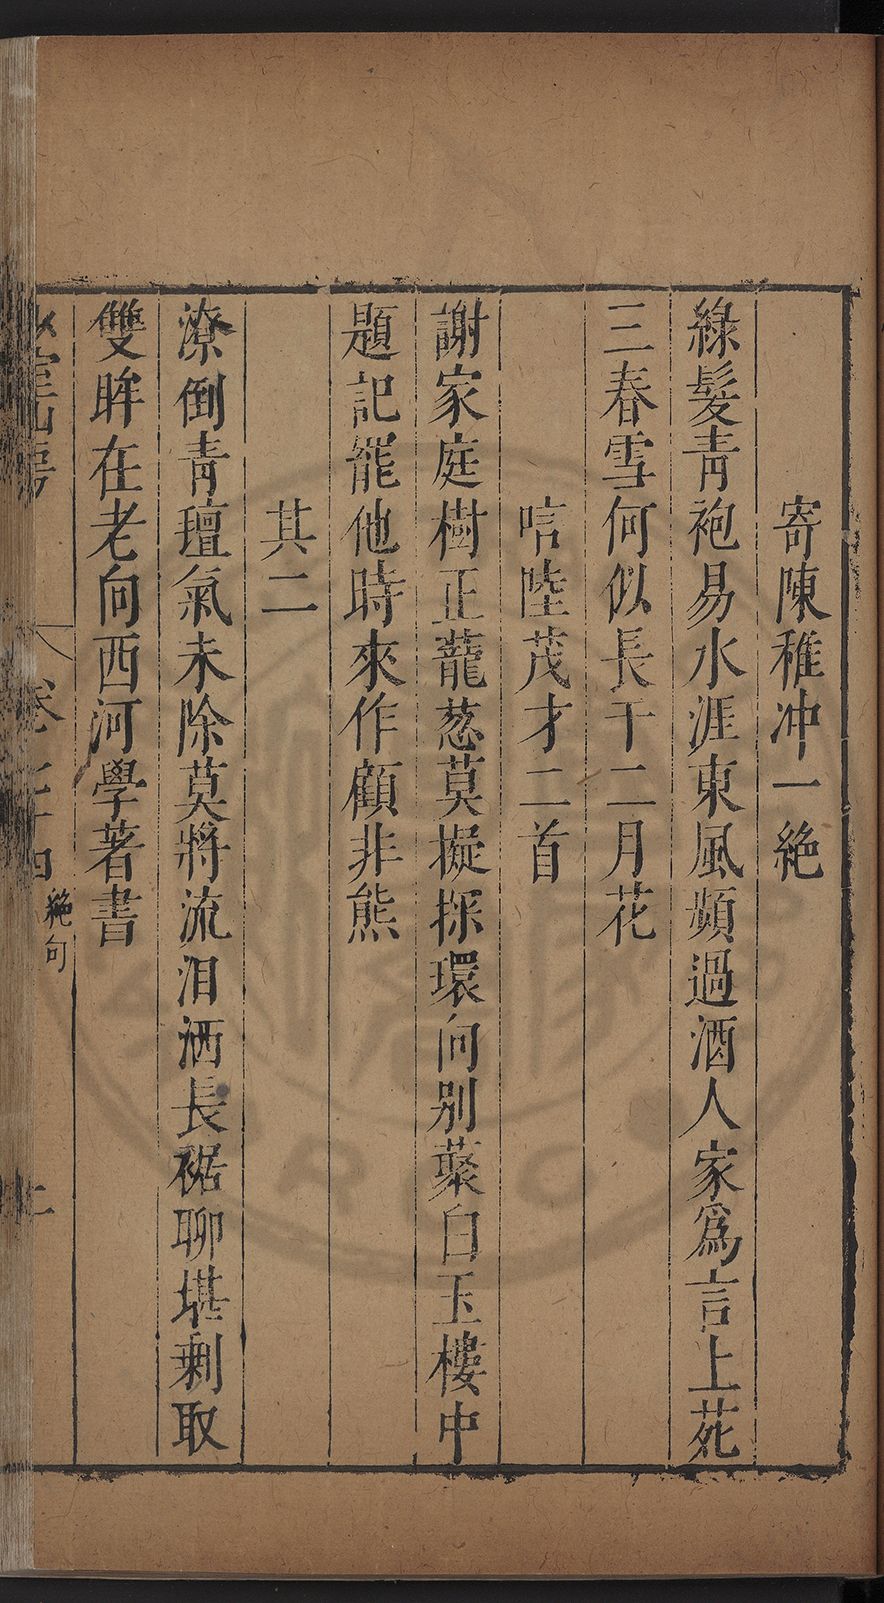 寄陳稚冲一絶
綠髮青袍易水涯東風頻過酒人家爲言上苑
三春雪何似長干二月花
唁陸茂才二首
謝家庭樹正蘢葱莫擬探環向别藂白玉樓中
題記罷他時來作顧非熊
其二
潦倒青氊氣未除莫將流泪洒長裾聊堪剩取
雙眸在老向西河學著書
山房
卷二十四
絶句